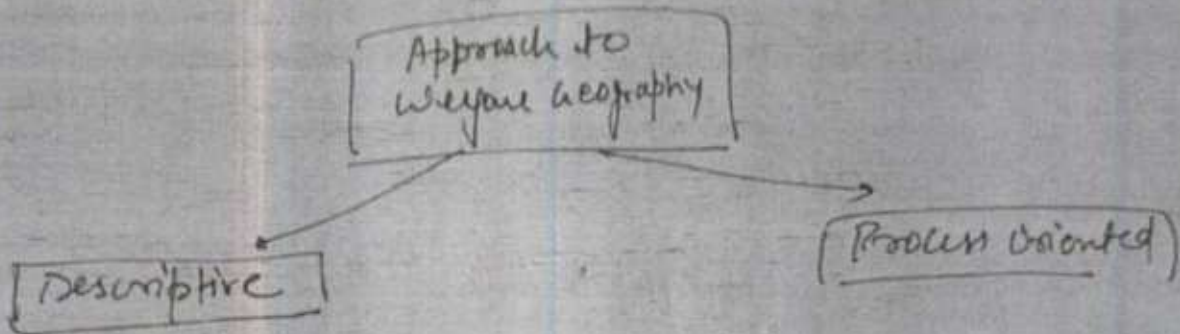 Approach to
Welfare Geography
Descriptive
Process oriented